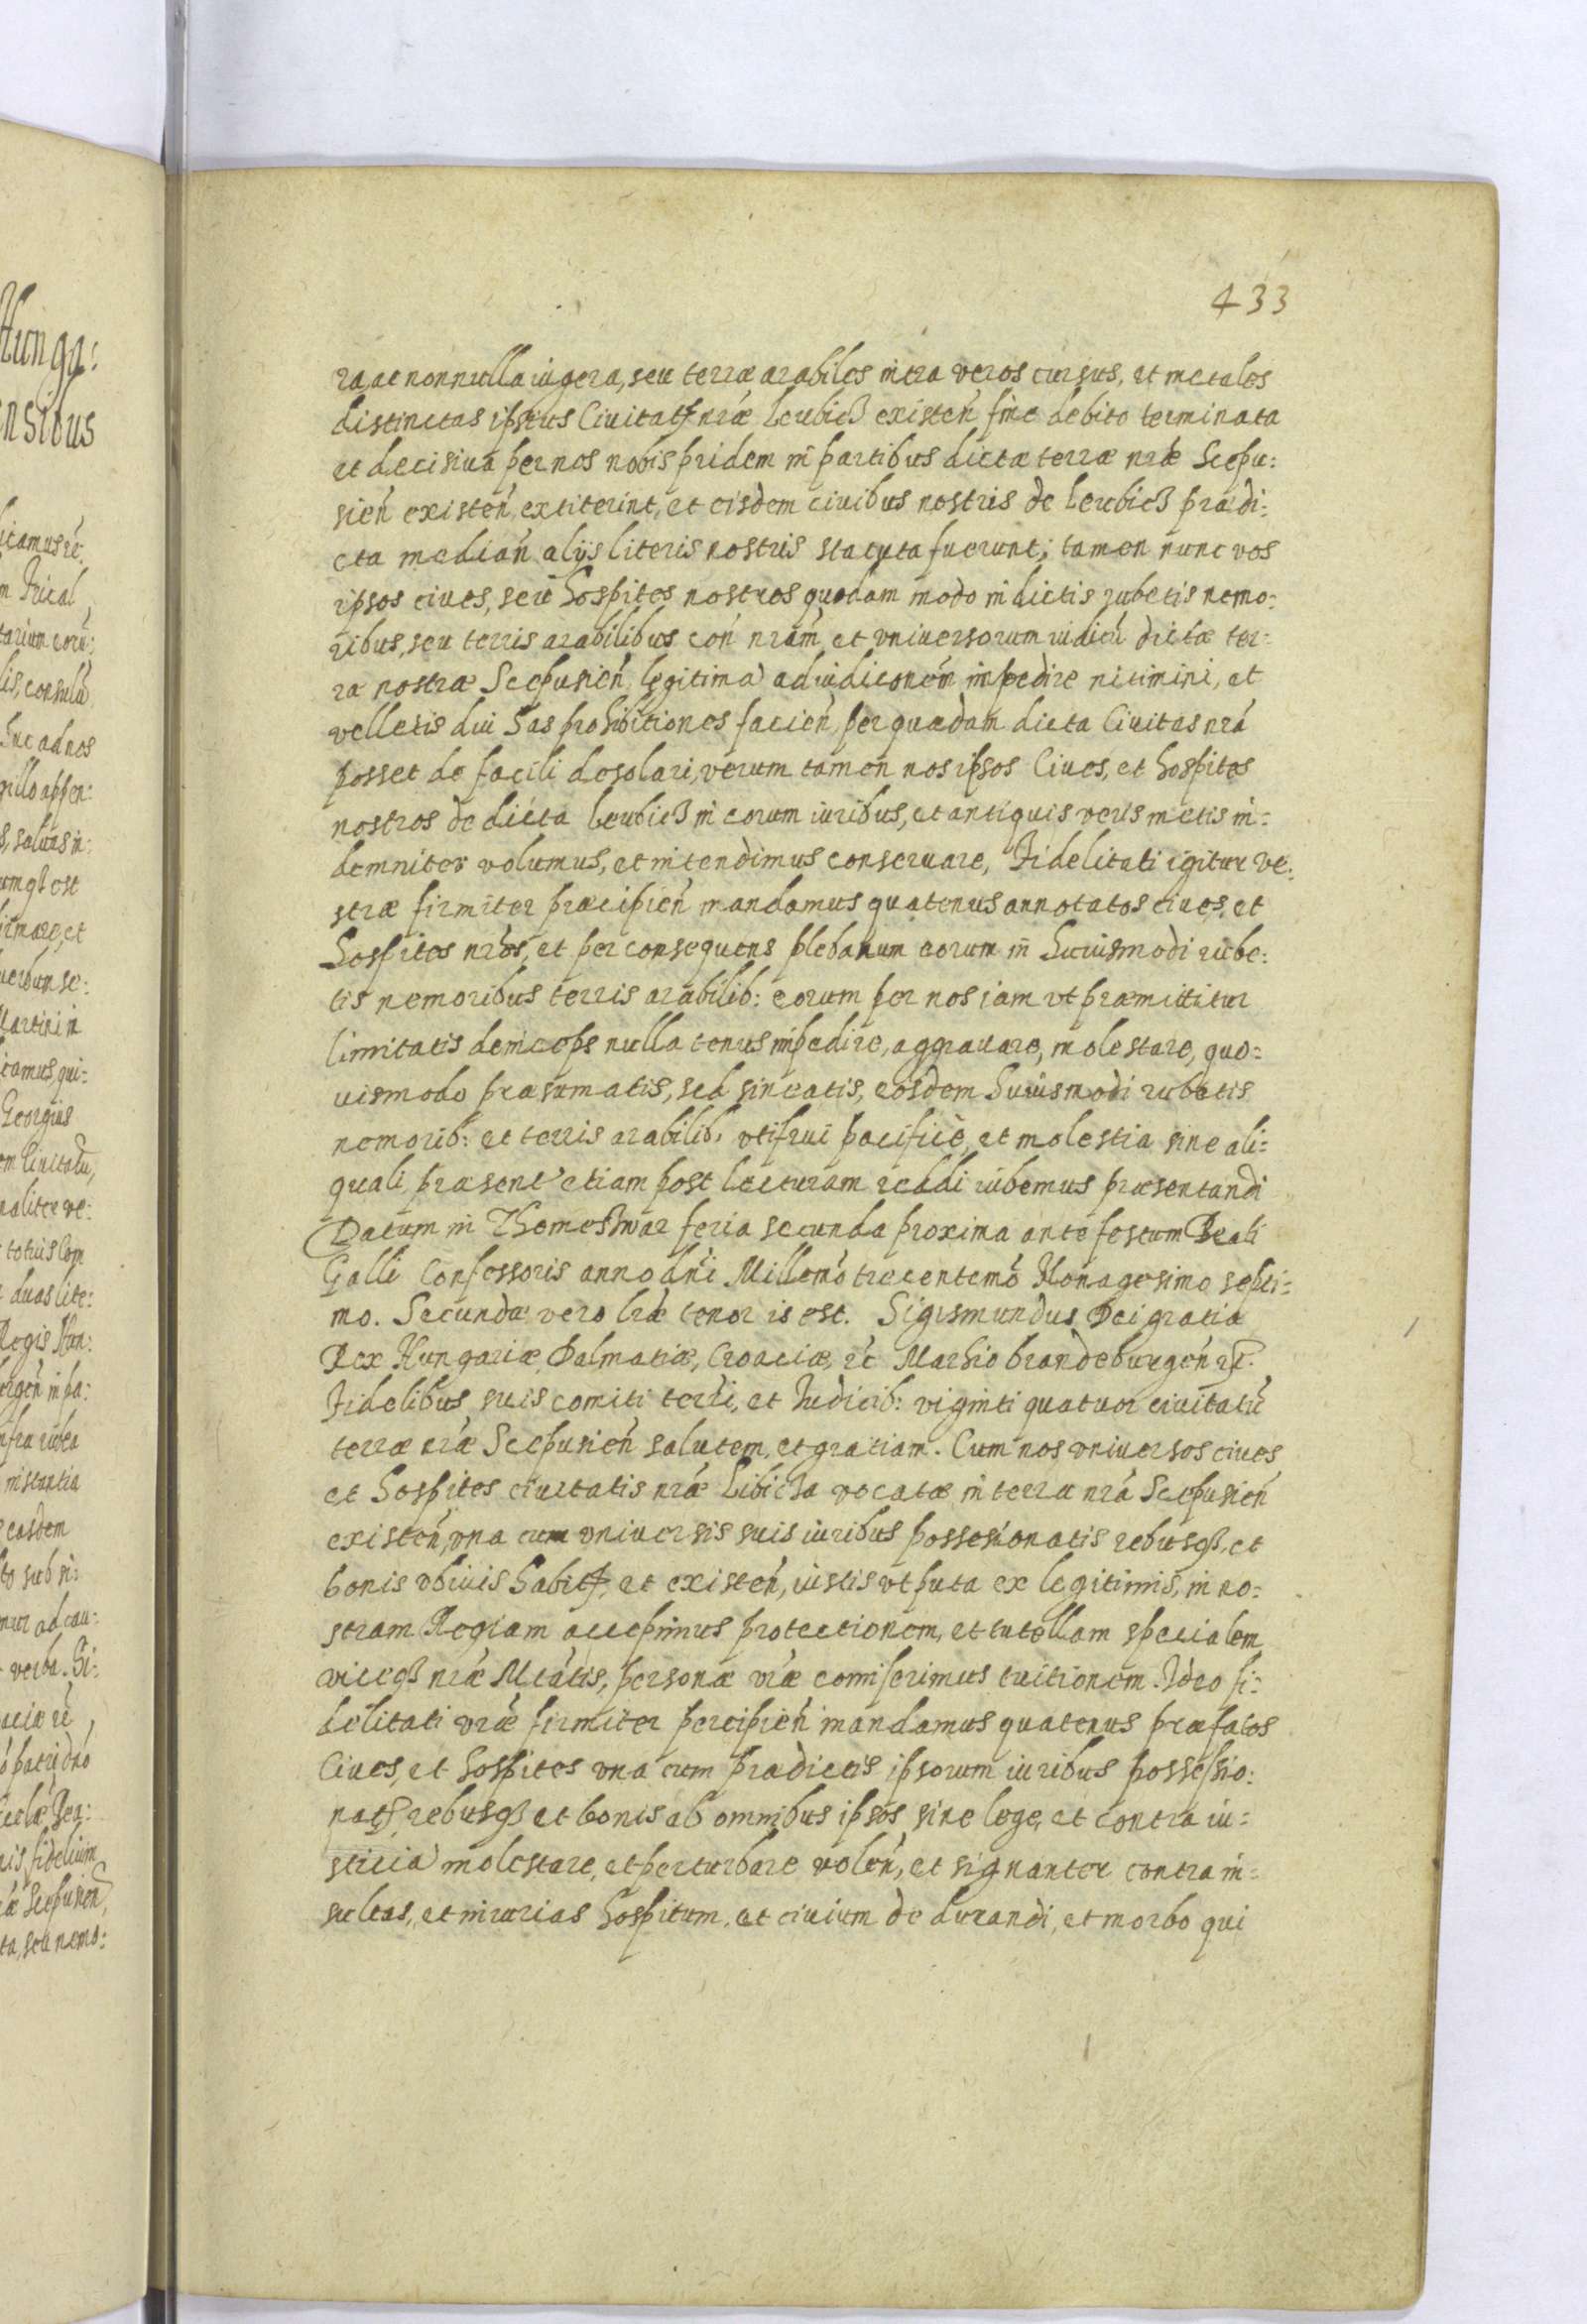 433
ra, ac nonnulla iugera, seu terræ arabiles intra veros cursus, et metales
distinctas ipsius Ciuitat nræ Leubicz existeń sine debito terminata
et decisiua per nos nobis pridem in partibus dictæ terræ nræ Scepu:
sień existeń, extiterint, et eisdem ciuibus nostris de Leubicz prædi:
cta mediań alijs literis nostris statuta fuerunt; tamen nunc vos
ipsos ciues, seu hospites nostros quodam modo in dictis rubetis nemo:
ribus, seu terris arabilibus coń nrám et vniuersorum iudicū dictæ ter:
ræ nostræ Scepusień legitimā adiudiconém impedire nitimini, et
velletis dui has prohibitiones facień per quædam dicta Ciuitas nrá
posset de facili desolari, verum tamen nos ipsos Ciues, et hospites
nostros de dicta Leubicz in eorum iuribus, et antiquis veris metis in:
demniter volumus, et intendimus conseruare, Fidelitati igitur ve:
stræ firmiter præcipień mandamus quatenus annotatos ciues, et
hospites nrós, et per consequens plebanum eorum in huiusmodi rube:
tis nemoribus terris arabilib: eorum per nos iam vt præmittitur
limitatis deinceps nulla tenus impedire, aggrauare, molestare, quo:
uismodo præsumatis, sed sineatis, eosdem huiusmodi rubetis
nemorib: et terris arabilib: vtifrui pacificè, et molestia sine ali:
quali, præsent etiam post lecturam reddi iubemus præsentandi
Datum in Themeshwar feria secunda proxima ante festum Beati
Galli Confessoris anno dńi Millemó trecentemó Nonagesimo septi:
mo. Secundæ vero lræ tenor is est. Sigismundus Dei gratia
Rex Hungariæ, Dalmatiæ, Croaciæ, etc Marhio brandeburgeń etc.
Fidelibus suis comiti terri, et Iudicib: viginti quatuor ciuitatū
terræ nræ Scepusień salutem, et gratiam. Cum nos vniuersos ciues
et hospites ciuitatis nræ Libicza vocatæ in terra nrá Scepusień
existeń, vna cum vniuersis suis iuribus possesionatis rebusq, et
bonis vbiuis habit, et existeń, iustis vtputa ex legitimis, in no:
stram Regiam accepimus protectionem, et tutellam specialem
viceq nræ Mtátis, personæ vræ comiserimus tuitionem. Ideo fi:
delitati vræ firmiter percipień mandamus quatenus præfatos
Ciues, et hospites vna cum prædictis ipsorum iuribus possessio:
nat, rebusq et bonis ab omnibus ipsos sine lege, et contra iu:
sticiā molestare, et perturbare voleń, et signanter contra in:
sultas, et iniurias hospitum, et ciuium de durandi, et morbo qui